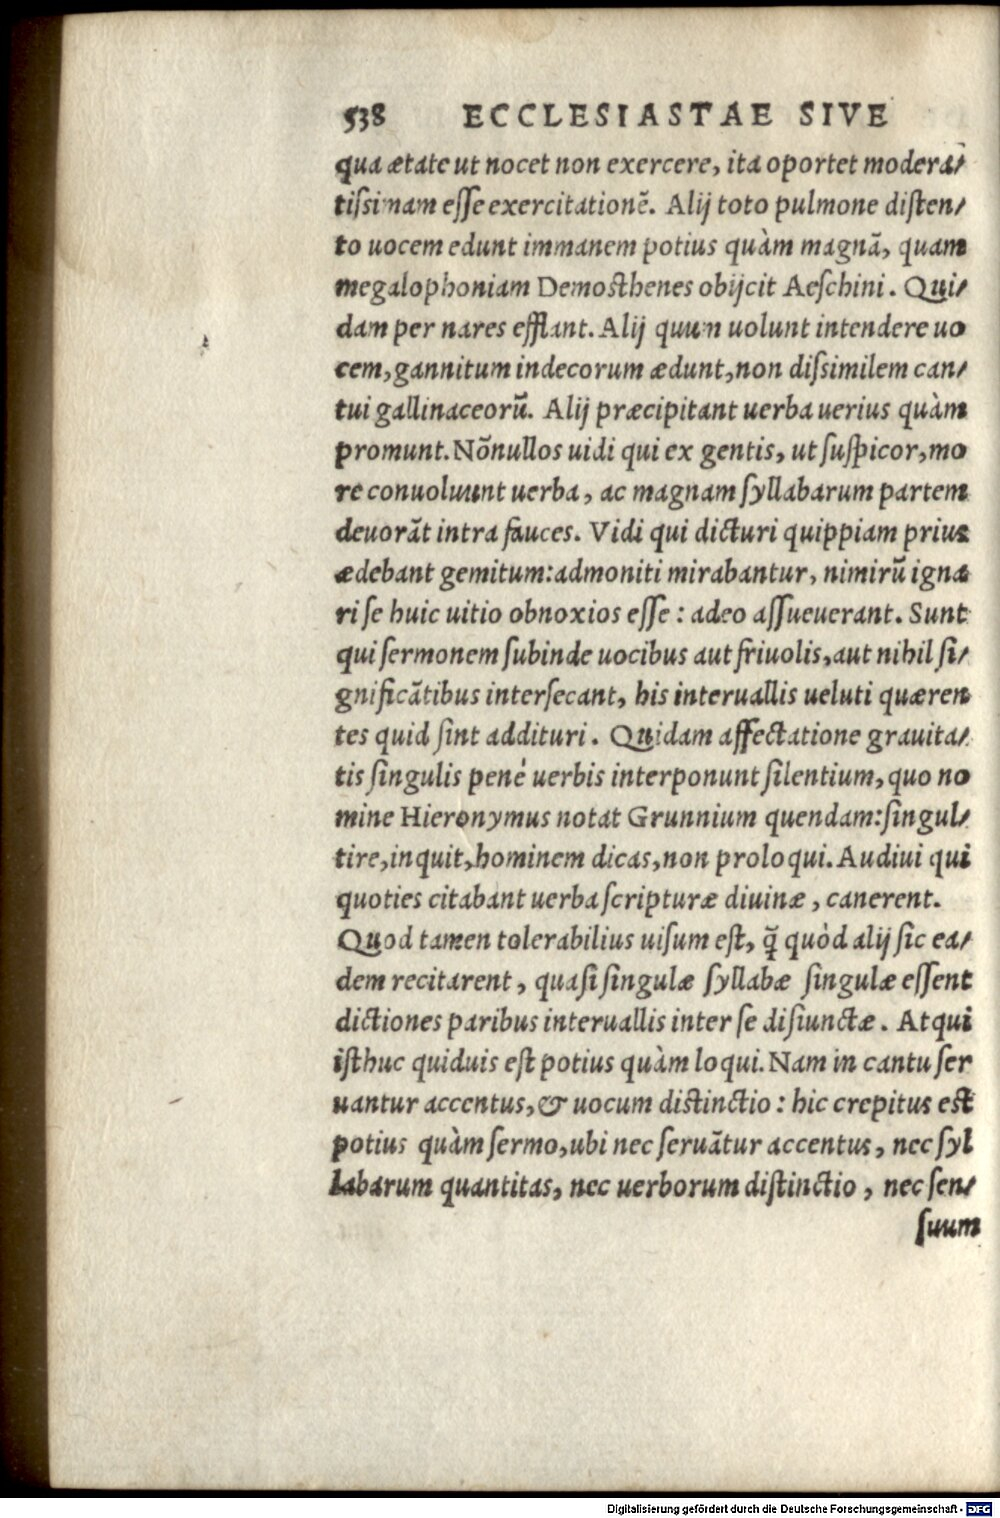 538 ECCLESIASTAE SIVE
qua ætate ut nocet non exercere, ita oportet modera/
tiſsimam eſſe exercitationẽ. Alij toto pulmone diſten/
to uocem edunt immanem potius quàm magnã, quam
megalophoniam Demoſthenes obijcit Aeſchini. Qui/
dam per nares efflant. Alij quum uolunt intendere uo
cem, gannitum indecorum ædunt, non diſsimilem can/
tui gallinaceorũ. Alij præcipitant uerba uerius quàm
promunt. Nõnullos uidi qui ex gentis, ut ſuſpicor, mo
re conuoluunt uerba, ac magnam ſyllabarum partem
deuorãt intra fauces. Vidi qui dicturi quippiam prius
ædebant gemitum: admoniti mirabantur, nimirũ igna
ri ſe huic uitio obnoxios eſſe: adeo aſſueuerant. Sunt
qui ſermonem ſubinde uocibus aut friuolis, aut nihil ſi/
gnificãtibus interſecant, his interuallis ueluti quæren
tes quid ſint addituri. Quidam affectatione grauita/
tis ſingulis pené uerbis interponunt ſilentium, quo no
mine Hieronymus notat Grunnium quendam: ſingul/
tire, inquit, hominem dicas, non proloqui. Audiui qui
quoties citabant uerba ſcripturæ diuinæ, canerent.
Quod tamen tolerabilius uiſum eſt, q̃ quòd alij ſic ea/
dem recitarent, quaſi ſingulæ ſyllabæ ſingulæ eſſent
dictiones paribus interuallis inter ſe diſiunctæ. Atqui
iſthuc quiduis eſt potius quàm loqui. Nam in cantu ſer
uantur accentus, & uocum diſtinctio: hic crepitus eſt
potius quàm ſermo, ubi nec ſeruãtur accentus, nec ſyl
labarum quantitas, nec uerborum diſtinctio, nec ſen/
ſuum
Digitalisierung gefördert durch die Deutsche Forschungsgemeinschaft - DFG